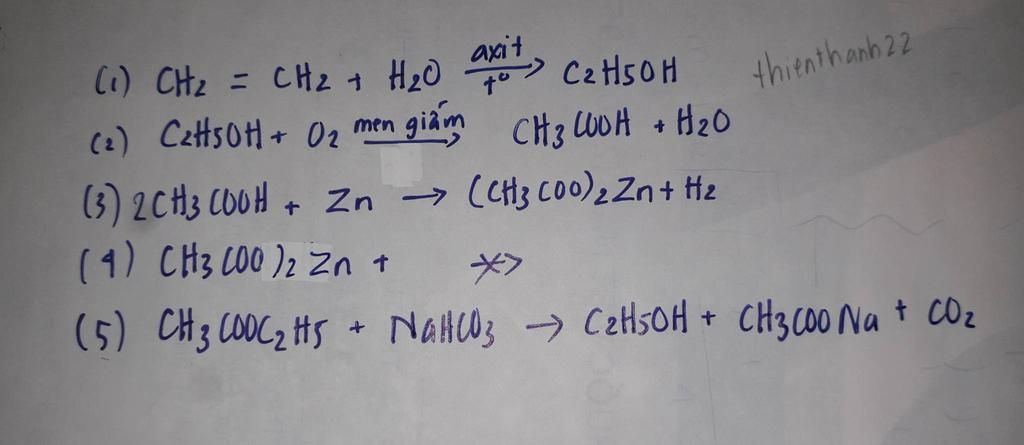 (1) CH2 = CH2 + H2O axit t° → C2H5OH thienthanh22
(2) C2H5OH + O2 men giấm → CH3COOH + H2O
(3) 2CH3COOH + Zn → (CH3COO)2Zn + H2
(4) CH3COO)2 Zn +
(5) CH3COOC2H5 + NaHCO3 → C2H5OH + CH3COONa + CO2